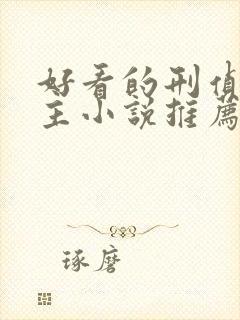 好看的刑偵
主小說推薦
琢磨